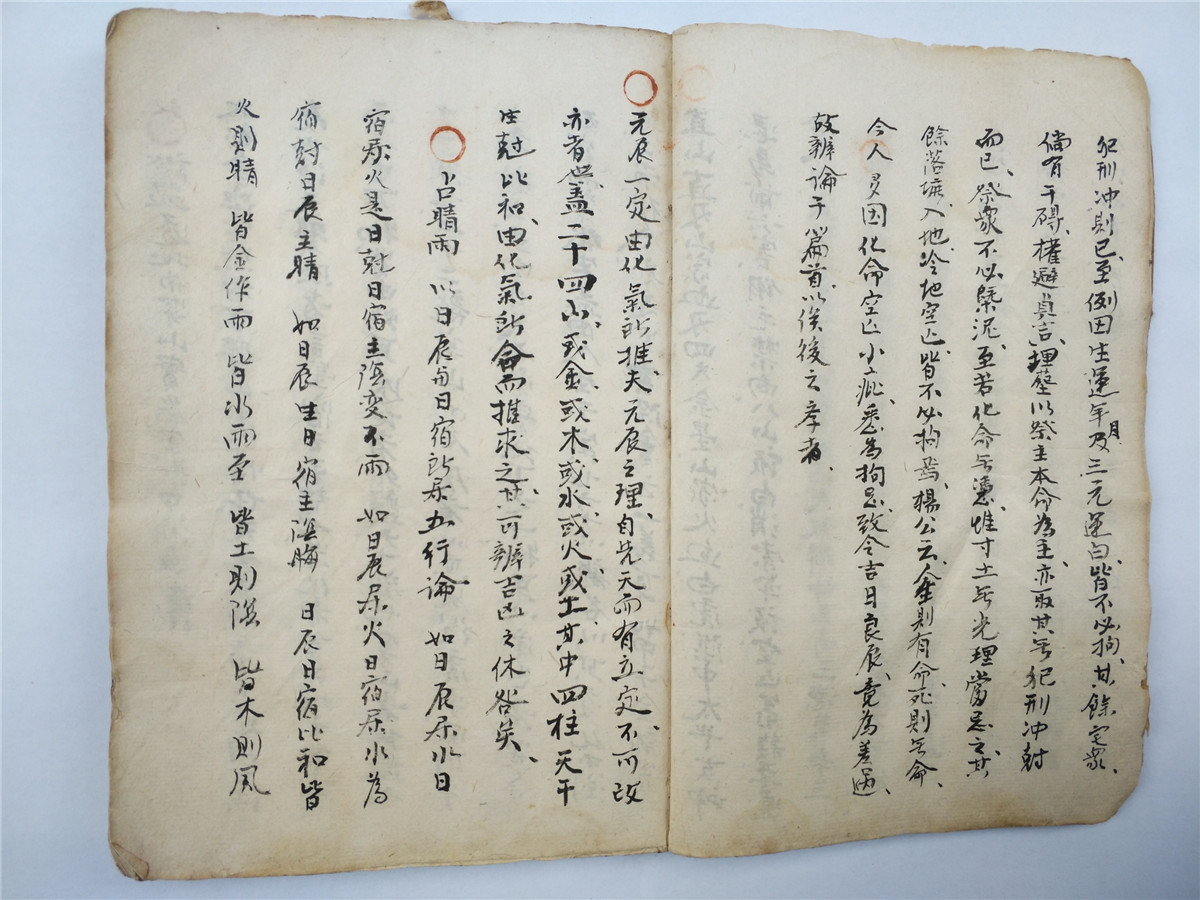 犯刑冲則已至例田生運年月及三元運白皆不必拘其餘空衆
倘有干碍權避真吉埋塟以祭主本命為主亦取其無犯刑冲尅
而已祭衆不必槩泥至若化命無憑惟寸土無光理當忌之其
餘落壙入地冷地空亡皆不必拘焉楊公云人生則有命死則無命
今人多因化命空亡小疵悉為拘忌致令吉日良辰竟為差遇
故辨論于篇首以俟後之孝者
元辰一定由化氣所推夫元辰之理自先天而有立定不可改
亦者也蓋二十四山或金或木或水或火或土其中四柱天干
生尅比和由化氣所命而推求之其可辨吉凶之休咎矣
占晴雨 以日辰与日宿所屬五行論 如日辰屬水日
宿屬火是日尅日宿主陰变不雨 如日辰屬火日宿屬水為
宿尅日辰主晴 如日辰生日宿主陰晦 日辰日宿比和皆
火則晴 皆金作雨 皆水雨至 皆土則陰 皆木則風